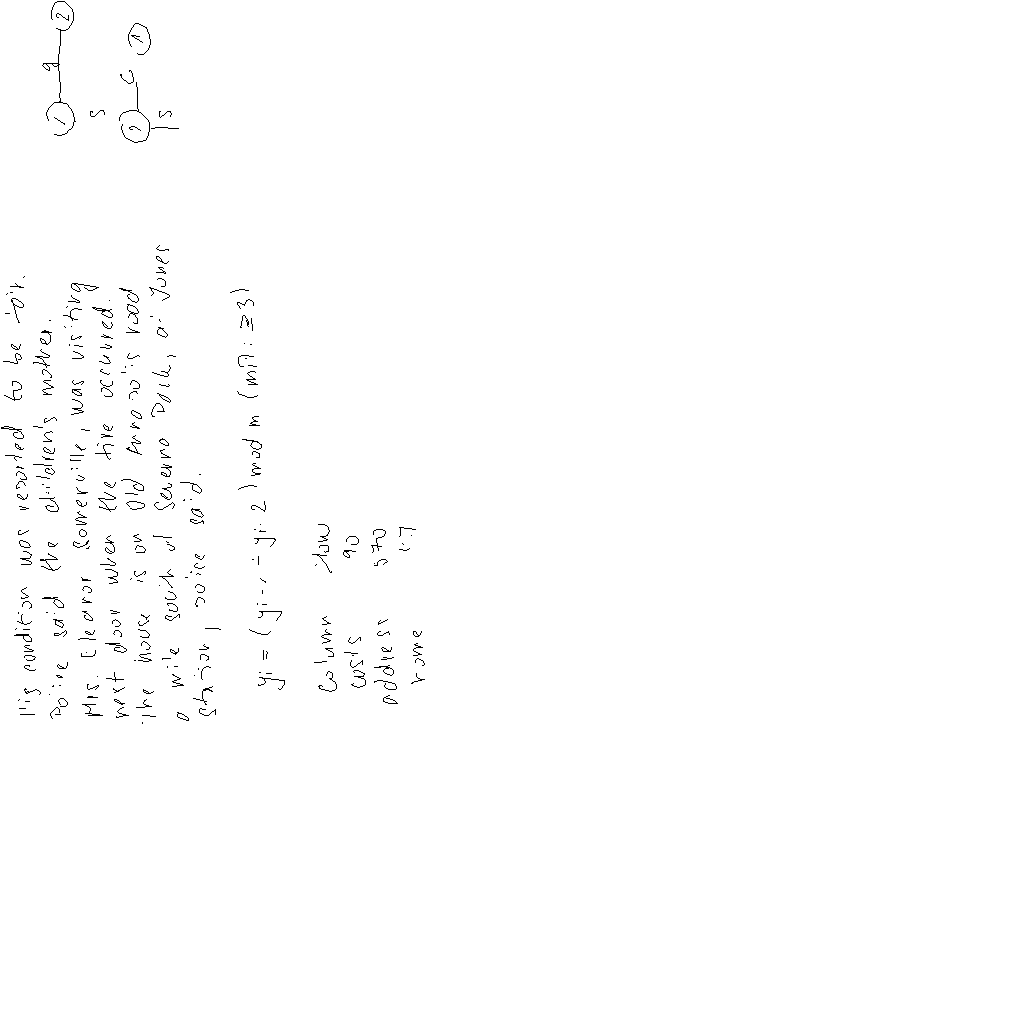 His condition was reported to be fair.
Police said the children's mother.
Mrs. Eleanor Somerville, was visiting
next door when the fire occurred.
The house is on Old Annapolis road
a mile south of Severna Park, at Jones
station, police said.
yi = (yi-1 + yi-2) mod m (mit i ≥ 3)
column row
costs 90
address 570
name